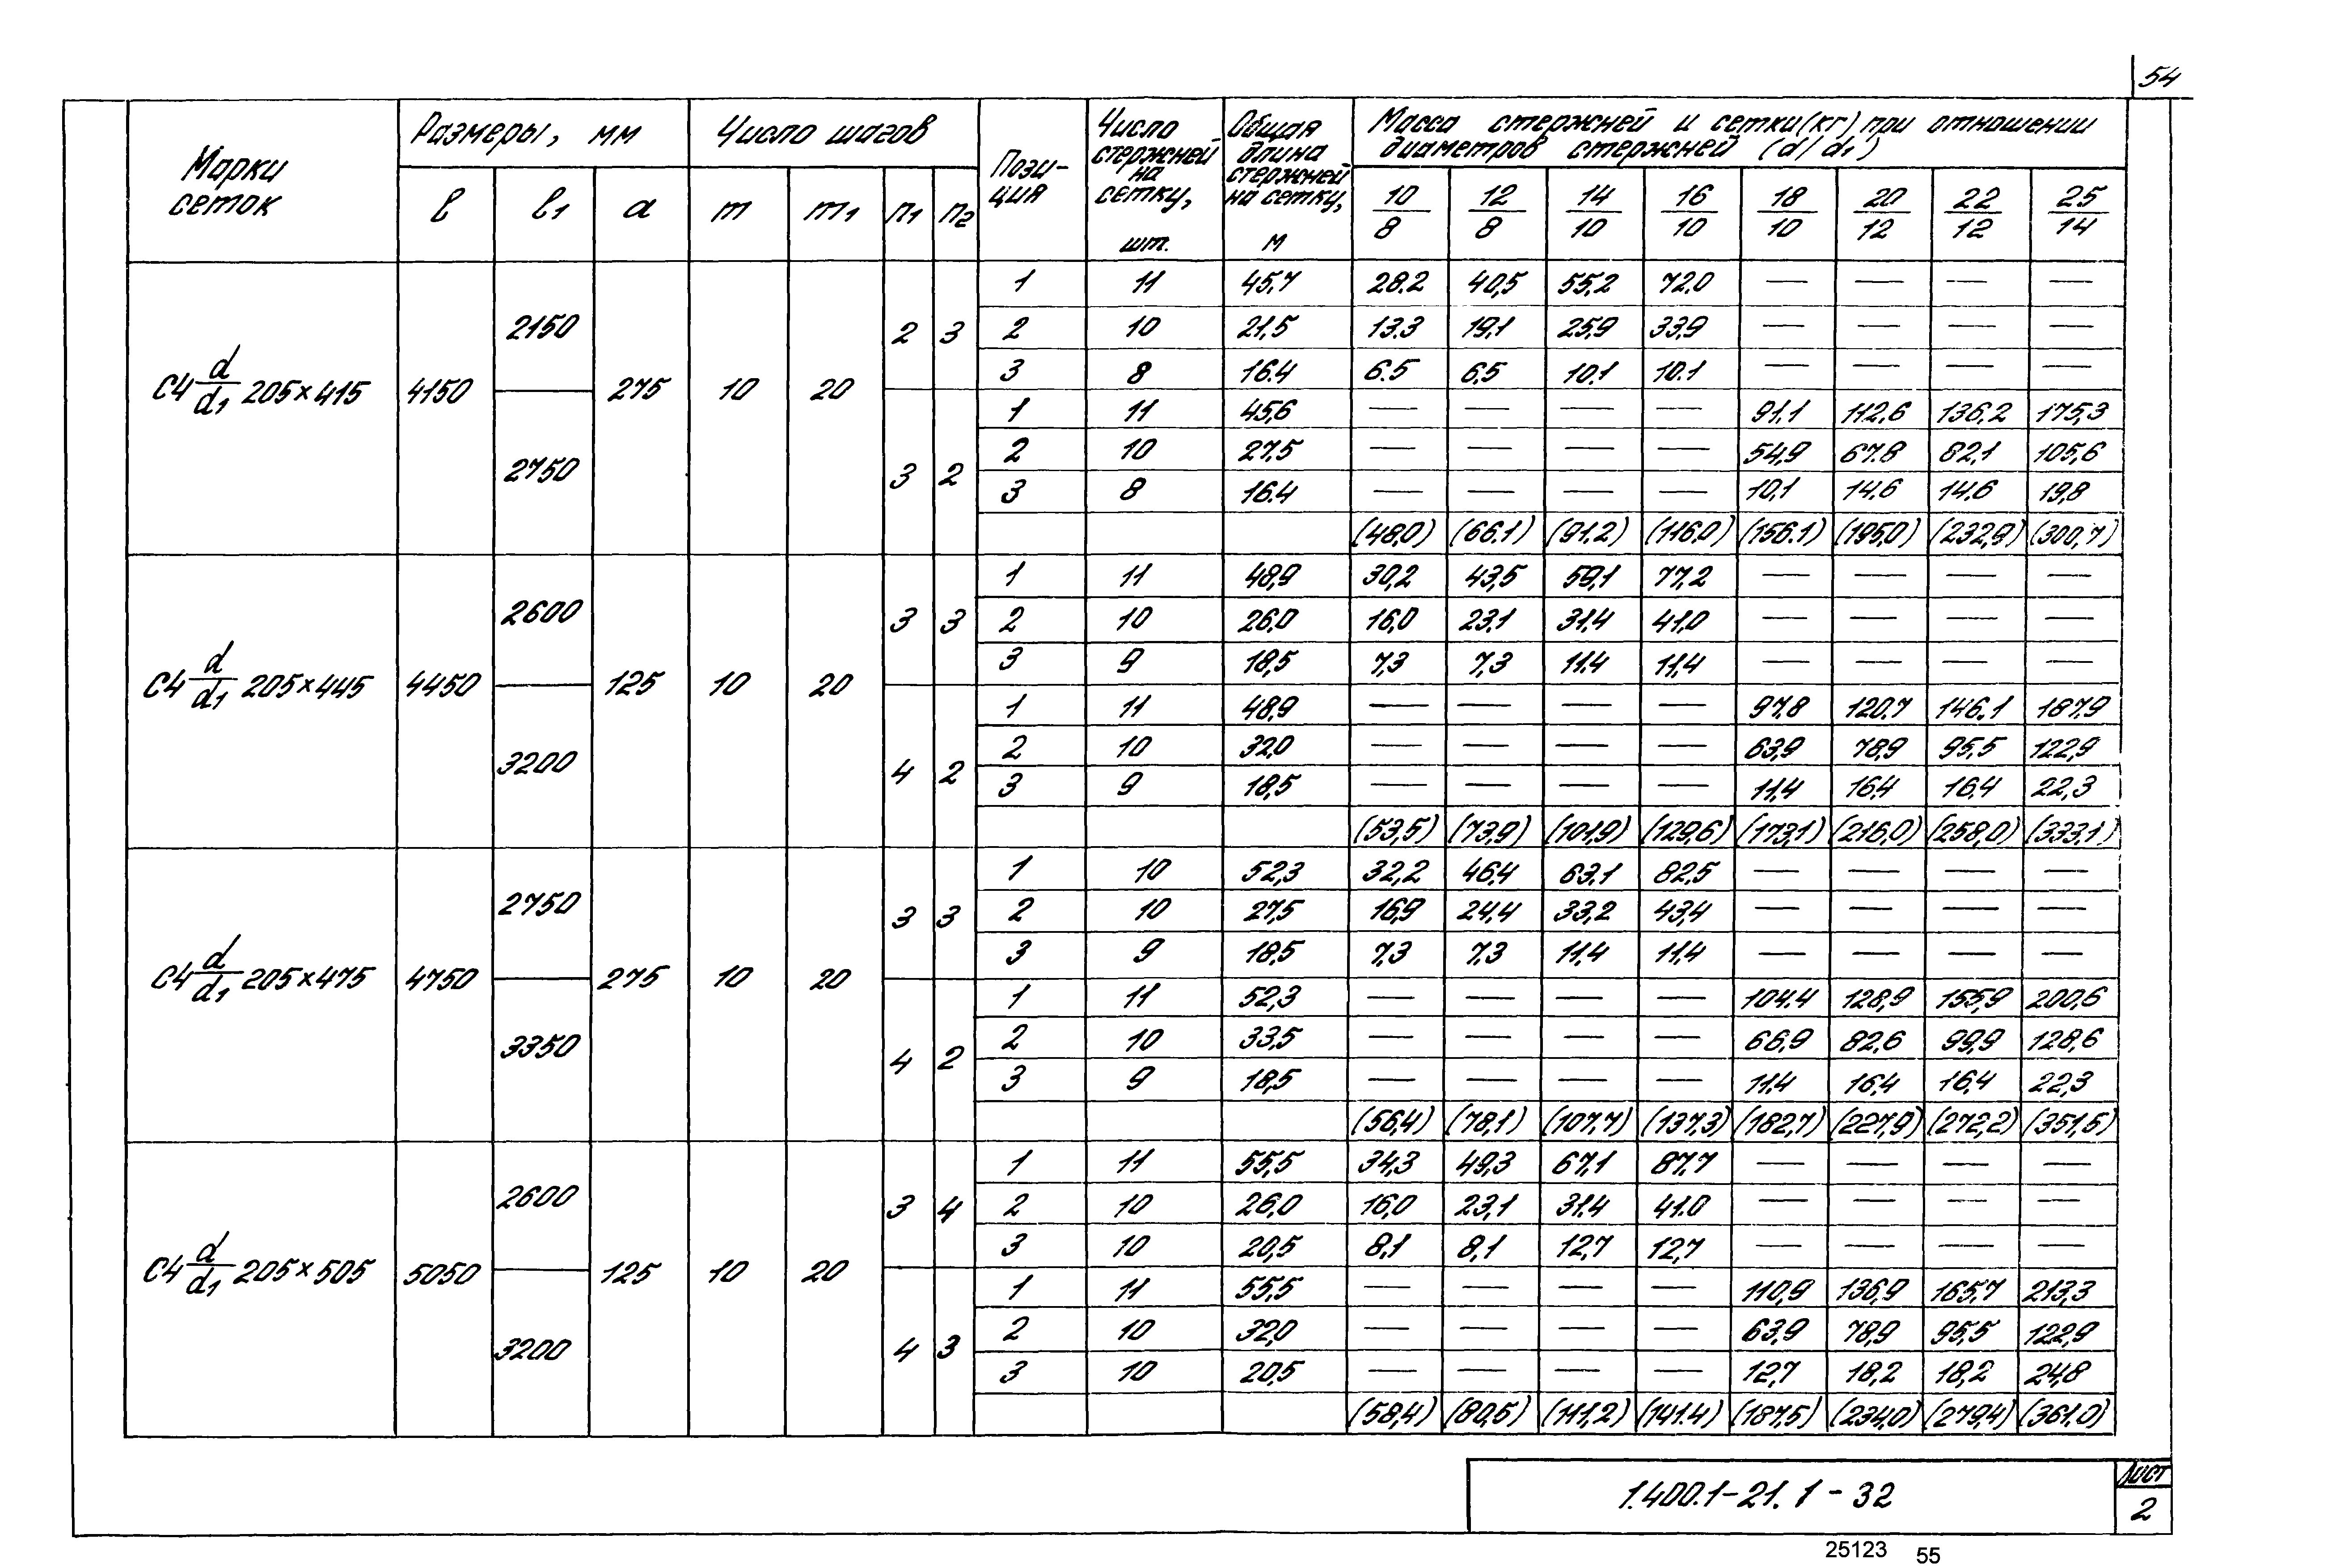 54
Марки сеток
Размеры, мм
Число шагов
Пози-
ция
Число стержней на сетку, шт.
Общая длина стержней на сетку, м
Масса стержней и сетки (кг) при отношении
диаметров стержней (d/d1)
l l1 a m m1 n1 n2
10/8 12/8 14/10 16/10 18/10 20/12 22/12 25/14
С4 d/d1 205×415 4150 275 10 20
2150 2 3
1 11 45,7 28.2 40,5 55,2 72.0 — — — —
2 10 21,5 13.3 19,1 25,9 33,9 — — — —
3 8 16.4 6.5 6,5 10.1 10.1 — — — —
2750 3 2
1 11 45,6 — — — — 91,1 112,6 136,2 175,3
2 10 27,5 — — — — 54,9 67.8 82,1 105,6
3 8 16.4 — — — — 10,1 14,6 14,6 19,8
(48,0) (66.1) (91.2) (116.0) (156.1) (195,0) (232,9) (300,7)
С4 d/d1 205×445 4450 125 10 20
2600 3 3
1 11 48,9 30,2 43,5 59,1 77,2 — — — —
2 10 26,0 16,0 23,1 31,4 41,0 — — — —
3 9 18,5 7,3 7,3 11,4 11,4 — — — —
3200 4 2
1 11 48,9 — — — — 97,8 120,7 146,1 187,9
2 10 32,0 — — — — 63,9 78,9 95,5 122,9
3 9 18,5 — — — — 11,4 16,4 16,4 22,3
(53,5) (73,9) (101,9) (129,6) (173,1) (216,0) (258,0) (333,1)
С4 d/d1 205×475 4750 275 10 20
2750 3 3
1 10 52,3 32,2 46,4 63,1 82,5 — — — —
2 10 27,5 16,9 24,4 33,2 43,4 — — — —
3 9 18,5 7,3 7,3 11,4 11,4 — — — —
3350 4 2
1 11 52,3 — — — — 104.4 128,9 155,9 200,6
2 10 33,5 — — — — 66,9 82,6 99,9 128,6
3 9 18,5 — — — — 11,4 16,4 16,4 22,3
(56,4) (78,1) (107,7) (137,3) (182,7) (227,9) (272,2) (351,5)
С4 d/d1 205×505 5050 125 10 20
2600 3 4
1 11 55,5 34,3 49,3 67,1 87,7 — — — —
2 10 26,0 16,0 23,1 31.4 41.0 — — — —
3 10 20,5 8,1 8,1 12,7 12,7 — — — —
3200 4 3
1 11 55,5 — — — — 110,9 136,9 165,7 213,3
2 10 32,0 — — — — 63,9 78,9 95,5 122,9
3 10 20,5 — — — — 12,7 18,2 18,2 24,8
(58,4) (80,5) (111,2) (141.4) (187,5) (234,0) (279,4) (361.0)
1.400.1-21.1-32
Лист
2
25123 55